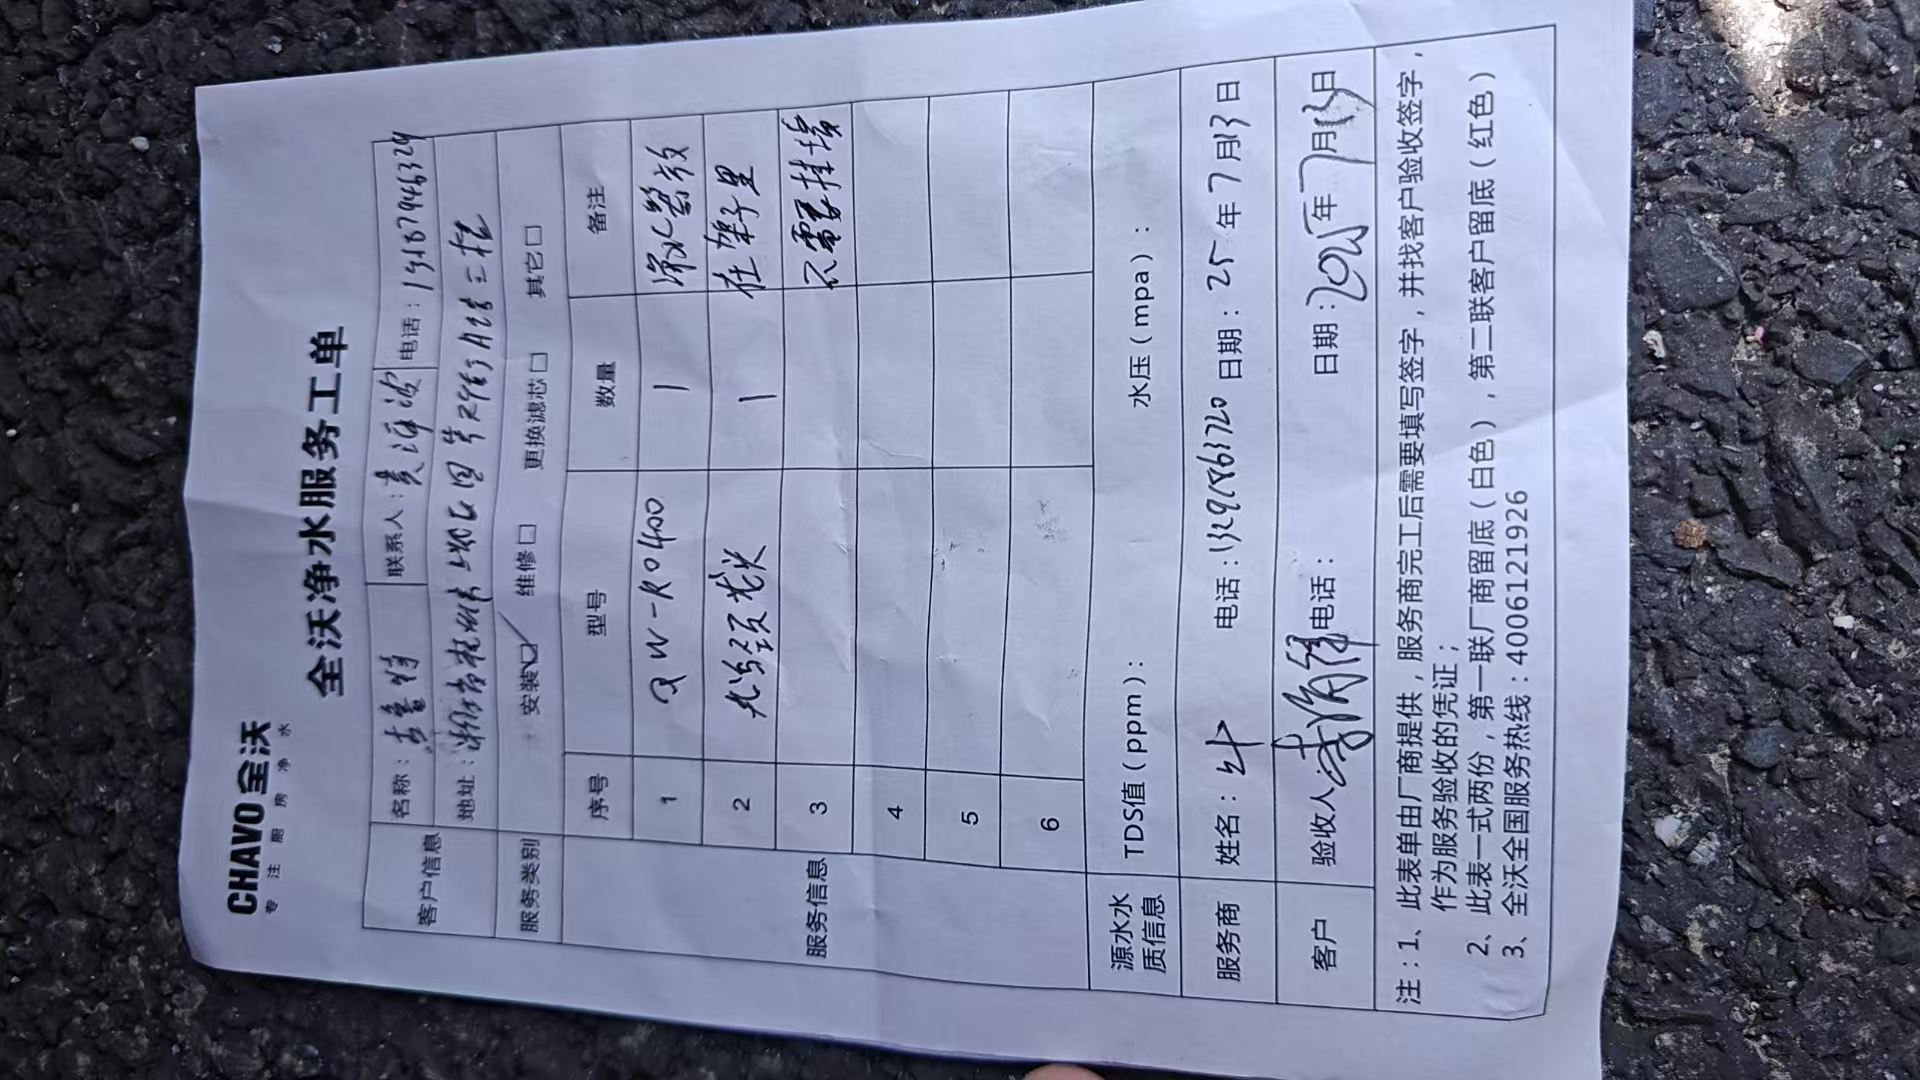 CHAVO全沃
专注厨房净水
全沃净水服务工单
客户信息 名称: 联系人: 电话:
地址:
服务类别 安装☑ 维修□ 更换滤芯□ 其它□
服务信息 序号 型号 数量 备注
1 QW-RO400 1 净水器放
2 1 在架子里
3 不需要挂墙
4
5
6
源水水质信息 TDS值(ppm): 水压(mpa):
服务商 姓名: 电话: 日期:25年7月13日
客户 验收人: 电话: 日期:2025年7月13日
注:1、此表单由厂商提供,服务商完工后需要填写签字,并找客户验收签字,
作为服务验收的凭证;
2、此表一式两份,第一联厂商留底(白色),第二联客户留底(红色)
3、全沃全国服务热线:4006121926